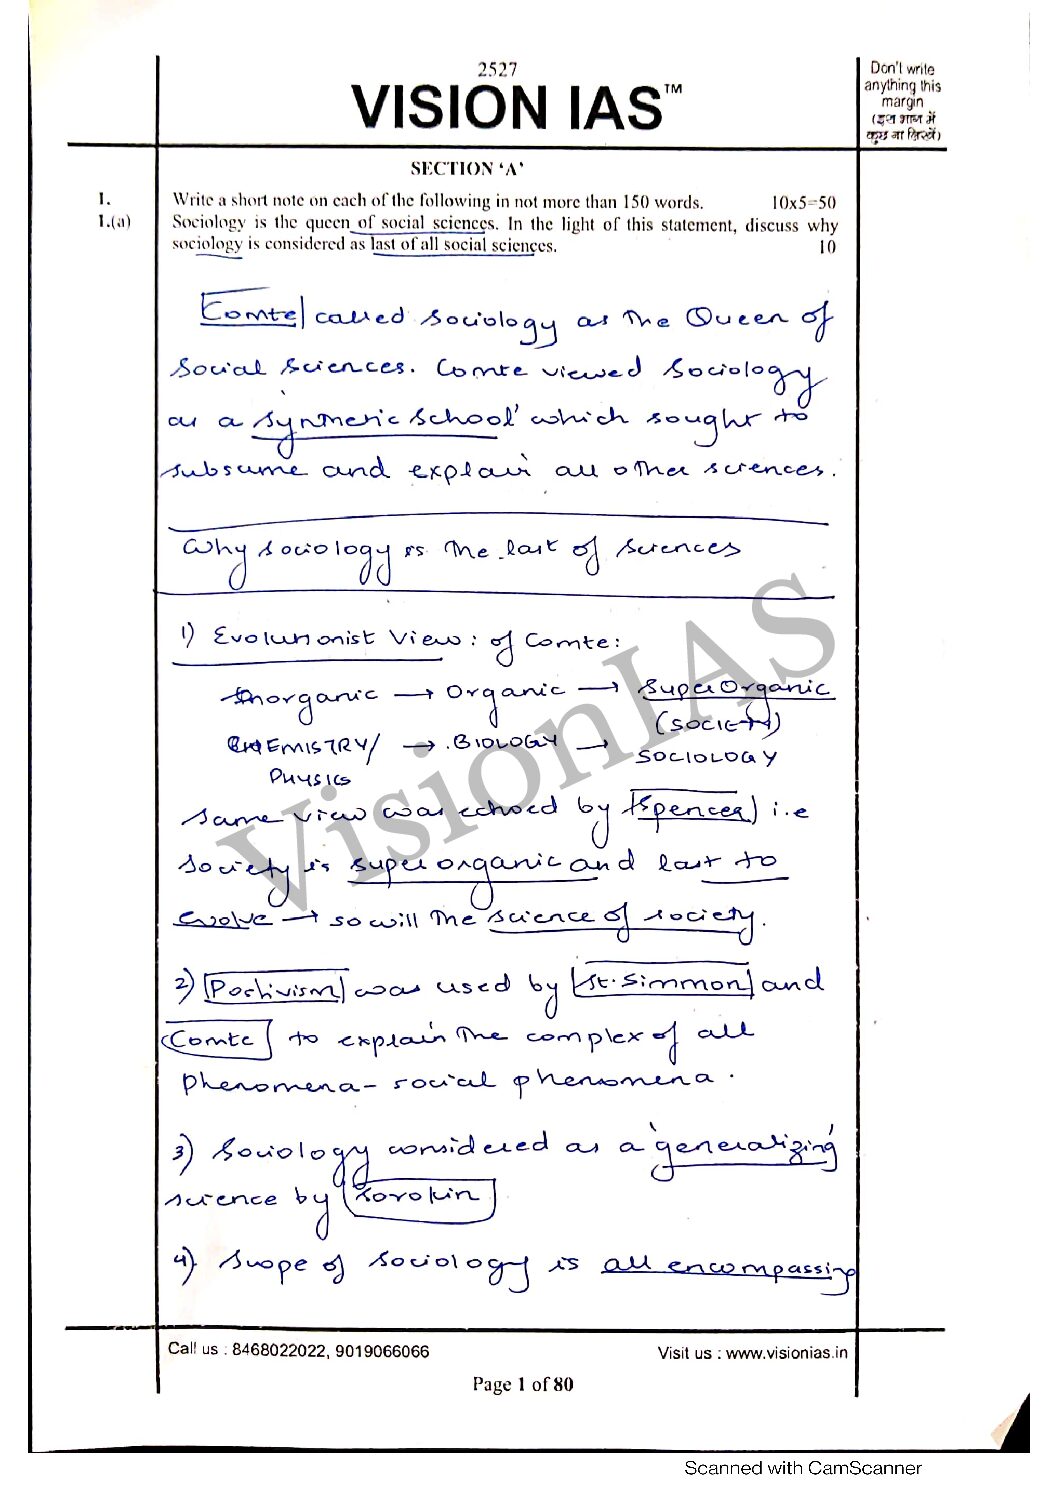 2527
VISION IAS™
Don't write
anything this
margin
(इस भाग में
कुछ ना लिखें)
SECTION ‘A’
1. Write a short note on each of the following in not more than 150 words. 10x5=50
1.(a) Sociology is the queen of social sciences. In the light of this statement, discuss why
sociology is considered as last of all social sciences. 10
Comte called sociology as the Queen of
Social Sciences. Comte viewed Sociology
as a 'synthetic school' which sought to
subsume and explain all other sciences.
Why sociology is the last of sciences
1) Evolutionist View: of Comte:
Inorganic → Organic → Super Organic
(SOCIETY)
CHEMISTRY/ → BIOLOGY → SOCIOLOGY
PHYSICS
Same view was echoed by Spencer i.e
society is super organic and last to
evolve → so will the science of society.
2) Positivism was used by St. Simmon and
Comte to explain the complex of all
phenomena - social phenomena.
3) Sociology considered as a 'generalizing'
science by Sorokin
4) Scope of sociology is all encompassing
VisionIAS
Call us : 8468022022, 9019066066
Visit us : www.visionias.in
Page 1 of 80
Scanned with CamScanner